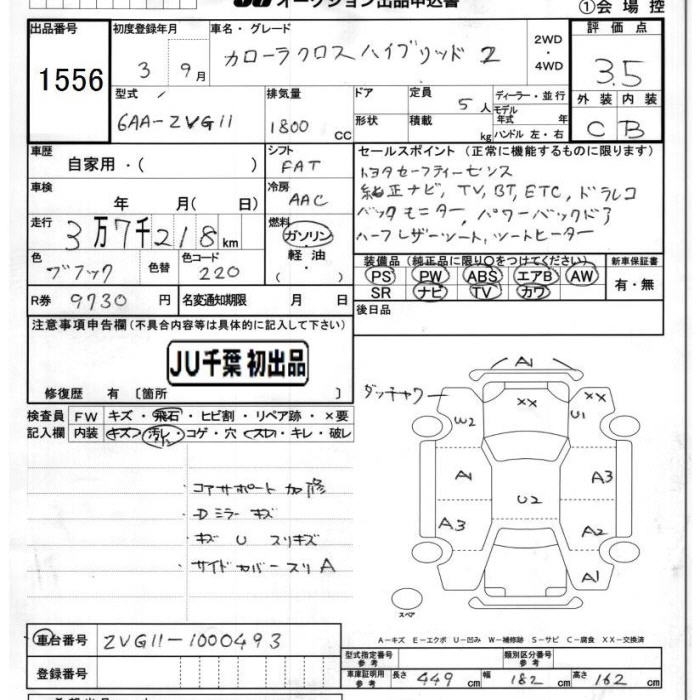 オークション出品申込書
①会場控
出品番号 初度登録年月 車名・グレード 2WD・4WD 評価点
1556 3 9月 カローラクロスハイブリッド Z 3.5
型式 排気量 ドア 定員 5人 ディーラー・並行 外装 内装
6AA-ZVG11 1800 CC 形状 積載 kg モデル年式 年式 ハンドル 左・右 C B
車歴 自家用・( ) シフト FAT セールスポイント(正常に機能するものに限ります)
車検 年 月( 日) 冷房 AAC トヨタセーフティーセンス
純正ナビ, TV, BT, ETC, ドラレコ
走行 3万7千218km 燃料 ガソリン・軽油・( ) バックモニター, パワーバックドア
ハーフレザーシート, シートヒーター
色 ブラック 色替 色コード 220 装備品(純正品に限り○をつけてください) 新車保証書
PS PW ABS エアB AW 有・無
SR ナビ TV カワ
R券 9730円 名変通知期限 月 日 後日品
注意事項申告欄(不具合内容等は具体的に記入して下さい)
JU千葉 初出品
修復歴 有 〔箇所 〕
検査員記入欄 FW キズ・飛石・ヒビ割・リペア跡・×要
内装 キズ・汚レ・コゲ・穴・スレ・キレ・破レ
コアサポート加修
Dミラーキズ
キズ U スリキズ
サイドカバースリ A
A1
ダッチャク
XX XX
W2 U1
A1 A3
U2
A3 A2
A1
スペア
A-キズ E-エクボ U-凹み W-補修跡 S-サビ C-腐食 XX-交換済
車台番号 ZVG11-1000493
登録番号
型式指定番号 参考 類別区分番号 参考
車庫証明用 参考 長さ 449cm 幅 182cm 高さ 162cm